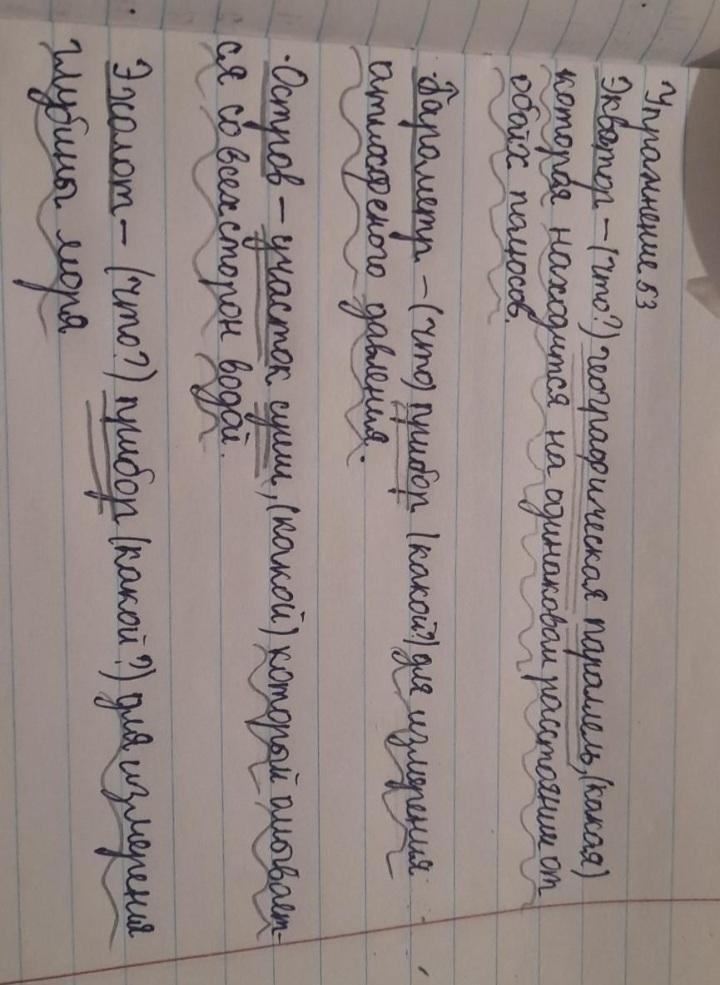 Упражнение 53
Экватор – (что?) географическая параллель, (какая)
которая находится на одинаковом расстоянии от
обоих полюсов.
·Барометр – (что) прибор (какой?) для измерения
атмосферного давления.
·Остров – участок суши, (какой) который омывает-
ся со всех сторон водой.
Эхолот – (что?) прибор (какой?) для измерения
глубины моря